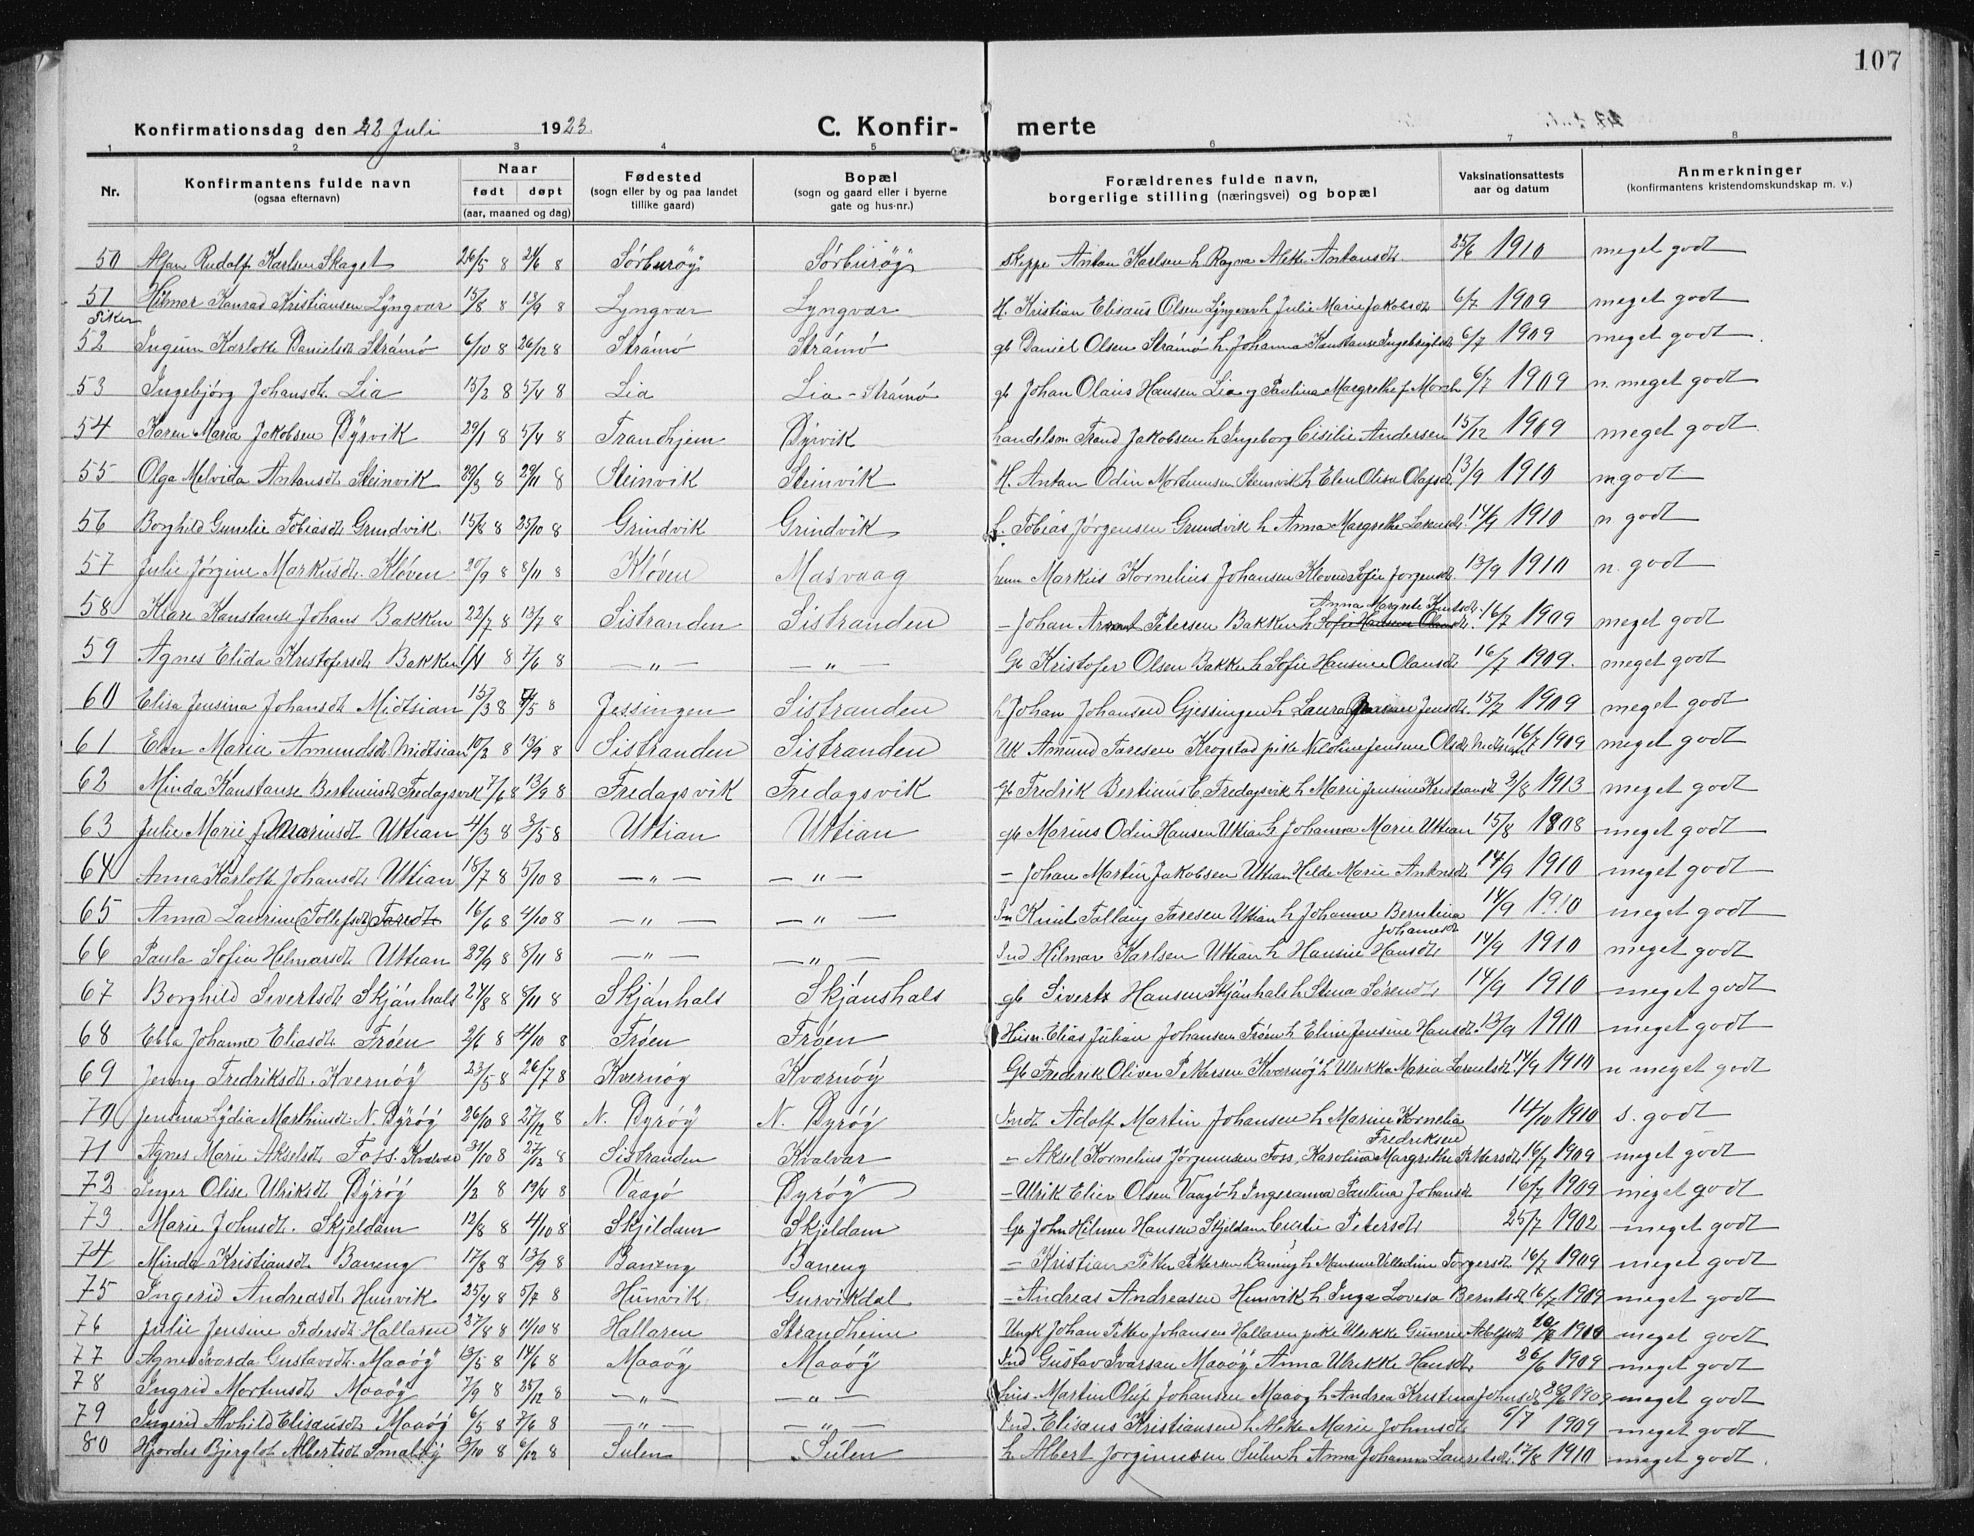 107
Konfirmationsdag den 22 Juli 1923. C. Konfir- merte
1 2 3 4 5 6 7 8
Nr. Konfirmantens fulde navn (ogsaa efternavn) Naar født døpt (aar, maaned og dag) Fødested (sogn eller by og paa landet tillike gaard) Bopæl (sogn og gaard eller i byerne gate og hus-nr.) Forældrenes fulde navn, borgerlige stilling (næringsvei) og bopæl Vaksinationsattests aar og datum Anmerkninger (konfirmantens kristendomskundskap m. v.)
50 Rudolf Karlsen Skaget 26/5 8 21/6 8 Sørburøy Sørburøy Skippe Antan Karlsen h. Ragna Antansdt. 25/6 1910 meget godt
51 Hilmar Konrad Kristiansen Lyngvær 15/8 8 13/9 8 Lyngvær Lyngvær Kristian Elisæus Olsen Lyngvær h Julie Marie Jakobsdt 6/7 1909 meget godt
Piker
52 Ingum Karlotte Danielsdt Strámø 6/10 8 26/12 8 Strámø Strámø gb Daniel Olsen Strámø h. Johanna Konstanse Ingebrigtsdt 6/7 1909 meget godt
53 Ingebjørg Johansdt. Lia 15/2 8 5/4 8 Lia Lia - Strámø gb Johan Olaus Hansen Lia og Paulina Margrethe f. Morch 6/7 1909 n. meget godt
54 Karen Maria Jakobsen Dyrvik 29/1 8 5/4 8 Trondhjem Dyrvik handelsm Trond Jakobsen h Ingeborg Cisilie Andersen 15/12 1909 meget godt
55 Olga Melvida Antonsdt. Steinvik 30/3 8 29/11 8 Steinvik Steinvik Antan Odin Mortensen Steinvik h Elen Olisa Olafsdt. 13/9 1910 m godt
56 Borghild Gunelie Tobiasdt Grundvik 15/8 8 25/10 8 Grindvik Grindvik Tobias Jørgensen Grundvik h Anna Margrethe 14/9 1910 n godt
57 Julie Jørgine Markusdt. Kløven 20/9 8 8/11 8 Kløven Masvaag Markus Kornelius Johansen Kløven Sofie Jørgensdt. 13/9 1910 n. godt
58 Klara Konstanse Johans Bakken 22/7 8 13/7 8 Sistranden Sistranden - Johan Petersen Bakken h Sofie Hansine Olausdt. Anna Margrete Knutsdt. 16/7 1909 meget godt
59 Agnes Elida Kristofersdt Bakken 1/4 8 7/6 8 — „ — — „ — Gb Kristofer Olsen Bakken h Sofie Hansine Olausdt 16/7 1909. meget godt
60 Elisa Jensina Johansdt. Midtsian 15/3 8 4/5 8 Jessingen Sistranden Johan Johansen Gjessingen h Laura Jensdt. 15/7 1909 meget godt
61 Elen Maria Amundsdt Midtsian 10/2 8 13/9 8 Sistranden Sistranden Uk Amund Taresen Krogstad pike Nikoline Jensine Olsdt. Midtsian 16/7 1909 meget godt
62 Minda Konstanse Bertinusdt Fredagsvik 7/6 8 13/9 8 Fredagsvik Fredagsvik gb Fredrik Bertinus Fredagsvik h Marie Jensine Kristiansdt 2/8 1913 meget godt
63 Julie Marie Mariusdt Uttian 4/3 8 3/5 8 Uttian Uttian gb Marius Odin Hansen Uttian h Johanna Marie Uttian 15/8 1908 meget godt
64 Anna Karlotte Johansdt. Uttian 18/7 8 5/10 8 — „ — — „ — - Johan Martin Jakobsen Uttian Hilde Marie 14/9 1910 meget godt
65 Anna Laurine Tollefsdt Taresdt 16/6 8 4/10 8 — „ — — „ — Taresen Uttian h Johanne Berntina Johannesdt 14/9 1910 meget godt
66 Paula Sofia Helmarsdt Uttian 29/9 8 8/11 8 — „ — — „ — Ind Hilmar Karlsen Uttian h Hansine Hansdt. 14/9 1910 meget godt
67 Borghild Sivertsdt Skjánhals 24/8 8 8/11 8 Skjánhals Skjánshals gb Sivert Hansen Skjánhals h Stina Sørensdt 14/9 1910 meget godt
68 Ebba Johanne Eliasdt Frøen 2/6 8 4/10 8 Frøen Frøen Husm. Elias Julian Johansen Frøen h Eline Jensine Hansdt. 13/9 1910 meget godt
69 Jenny Fredriksdt. Kvernøy 23/5 8 26/7 8 Kvernøy Kværnøy Gb Frederik Oliver Pettersen Kværnøy h Ulrikka Maria Larnetsdt 14/9 1910 n meget godt
70 Jensina Lydia Marthinsdt. N. Dyrøy 26/10 8 27/12 8 N. Dyrøy N. Dyrøy Indt Adolf Martin Johansen h Marine Kornelia Fredriksen 14/10 1910 s. godt
71 Agnes Marie Akselsdt Foss. Kvalvær 31/10 8 27/12 8 Sistranden Kvalvær - Aksel Kornelius Jørgensen Foss, Karolina Margrethe Pettersdt. 16/7 1909 meget godt
72 Inger Olise Ulriksdt Dyrøy 1/2 8 19/4 8 Vaagø Dyrøy - Ulrik Elier Olsen Vaagø h Ingeranna Paulina Johansdt 16/7 1909 meget godt
73 Marie Johnsdt. Skjeldam 12/8 8 4/10 8 Skjeldam Skjeldam Gb John Hilmer Hansen Skjeldam Petersdt 25/7 1902 meget godt
74 Minda Kristiansdt Baneng 17/8 8 13/9 8 Baneng Baneng - Kristian Petter Pettersen Baneng h Torgersdt 16/7 1909 meget godt
75 Ingerid Andreasdt. Hunvik 25/4 8 5/7 8 Hunvik Gurvikdal - Andreas Andreasen Hunvik h Inga Lovesa Berntsdt 16/7 1909 meget godt
76 Julie Jensine Pedersdt Hallaren 27/8 8 11/10 8 Hallaren Strandheim Ungk Johan Petter Johansen Hallaren pike Ulrikke Gunerie Adolfsdt 1910 meget godt
77 Agnes Ivarda Gustavsdt. Maaøy 13/5 8 14/6 8 Maaøy Maaøy Ind Gustav Ivarsen Maaøy Anna Ulrikke Hansdt. 26/6 1909 meget godt
78 Ingrid Mortensdt. Maaøy 7/9 8 25/12 8 — „ — — „ — Martin Oluf Johansen Maaøy h Andrea Kristina Johnsdt 1909 meget godt
79 Ingerid Alvhild Elisæusdt Maaøy 6/5 8 7/6 8 — „ — — „ — Ind. Elisæus Kristiansen h Alette Marie Johnsdt 6/7 1909 meget godt
80 Hjørdis Bjerglot Albertsdt Smaløy 3/10 8 6/12 8 Sulen Sulen h Albert Jørginusen Sulen h Anna Johanna Lauritsdt. 17/8 1910 meget godt